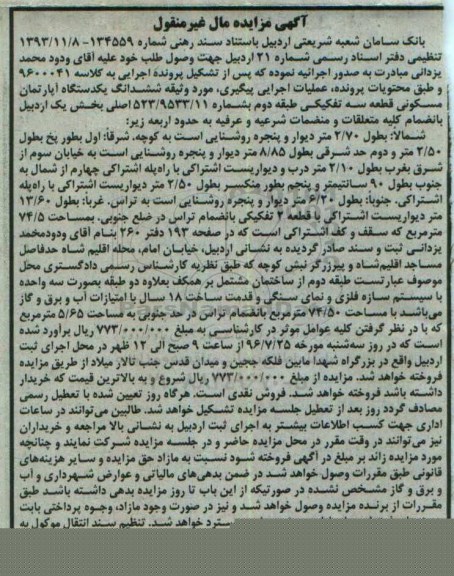 آگهی مزایده مال غیرمنقول
بانک سامان شعبه شریعتی اردبیل باستناد سند رهنی شماره ۱۳۴۵۵۹- ۱۳۹۳/۱۱/۸
تنظیمی دفتر اسناد رسمی شماره ۲۱ اردبیل جهت وصول طلب خود علیه آقای ودود محمد
یزدانی مبادرت به صدور اجرائیه نموده که پس از تشکیل پرونده اجرایی به کلاسه ۹۶۰۰۰۴۱
و طبق محتویات پرونده، عملیات اجرایی پیگیری، مورد وثیقه ششدانگ یکدستگاه آپارتمان
مسکونی قطعه سه تفکیکی طبقه دوم بشماره ۵۲۳/۹۵۳۳/۱۱ اصلی بخش یک اردبیل
بانضمام کلیه متعلقات و منضمات شرعیه و عرفیه به حدود اربعه زیر:
شمالاً: بطول ۲/۷۰ متر دیوار و پنجره روشنایی است به کوچه. شرقاً: اول بطور پخ بطول
۲/۵۰ متر و دوم حد شرقی بطول ۸/۸۵ متر دیوار و پنجره روشنایی است به خیابان سوم از
شرق بغرب بطول ۲/۱۰ متر درب و دیواریست اشتراکی با راه‌پله اشتراکی چهارم از شمال به
جنوب بطول ۹۰ سانتیمتر و پنجم بطور منکسر بطول ۲/۵۰ متر دیواریست اشتراکی با راه‌پله
اشتراکی. جنوباً: بطول ۶/۲۰ متر دیوار و پنجره روشنایی است به تراس. غرباً: بطول ۱۳/۶۰
متر دیواریست اشتراکی با قطعه ۴ تفکیکی بانضمام تراس در ضلع جنوبی. بمساحت ۷۴/۵
مترمربع که سقف و کف اشتراکی است که در صفحه ۱۹۳ دفتر ۲۶۰ بنام آقای ودودمحمد
یزدانی ثبت و سند صادر گردیده به نشانی اردبیل، خیابان امام، محله اقلیم شاه حدفاصل
مساجد اقلیم‌شاه و پیرزرگر نبش کوچه که طبق نظریه کارشناس رسمی دادگستری محل
موصوف عبارتست طبقه دوم از ساختمان مشتمل بر همکف بعلاوه دو طبقه بصورت سه واحده
با سیستم سازه فلزی و نمای سنگی و قدمت ساخت ۱۸ سال با امتیازات آب و برق و گاز
می‌باشد با مساحت ۷۴/۵۰ مترمربع بانضمام تراس در حد جنوبی به مساحت ۵/۶۵ مترمربع
که با در نظر گرفتن کلیه عوامل موثر در کارشناسی به مبلغ ۷۷۳/۰۰۰/۰۰۰ ریال برآورد شده
است که در روز سه‌شنبه مورخه ۹۶/۷/۲۵ از ساعت ۹ صبح الی ۱۲ ظهر در محل اجرای ثبت
اردبیل واقع در بزرگراه شهدا مابین فلکه ججین و میدان قدس جنب تالار میلاد از طریق مزایده
فروخته خواهد شد. مزایده از مبلغ ۷۷۳/۰۰۰/۰۰۰ ریال شروع و به بالاترین قیمت که خریدار
داشته باشد فروخته خواهد شد. فروش نقدی است. هرگاه روز تعیین شده با تعطیل رسمی
مصادف گردد روز بعد از تعطیل جلسه مزایده تشکیل خواهد شد. طالبین می‌توانند در ساعات
اداری جهت کسب اطلاعات بیشتر به اجرای ثبت اردبیل به نشانی بالا مراجعه و خریداران
نیز می‌توانند در وقت مقرر در محل مزایده حاضر و در جلسه مزایده شرکت نمایند و چنانچه
مورد مزایده زاند بر مبلغ در آگهی فروخته شود نسبت به مازاد حق مزایده و سایر هزینه‌های
قانونی طبق مقررات وصول خواهد شد در ضمن بدهی‌های مالیاتی و عوارض شهرداری و آب
و برق و گاز مشخص نشده در صورتیکه از این باب تا روز مزایده بدهی داشته باشد طبق
مقررات از برنده مزایده وصول خواهد شد و نیز در صورت وجود مازاد، وجوه پرداختی بابت
سترد خواهد شد. تنظیم سند انتقال موکول به